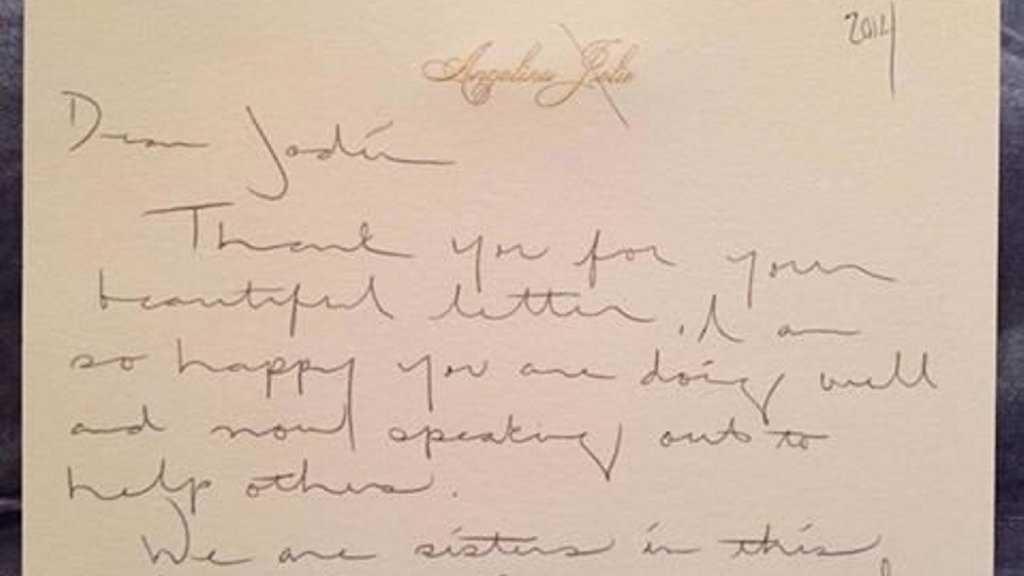 2014
Angelina Jolie
Dear Jodi
Thank you for your
beautiful letter. I am
so happy you are doing well
and now speaking out to
help others.
We are sisters in this